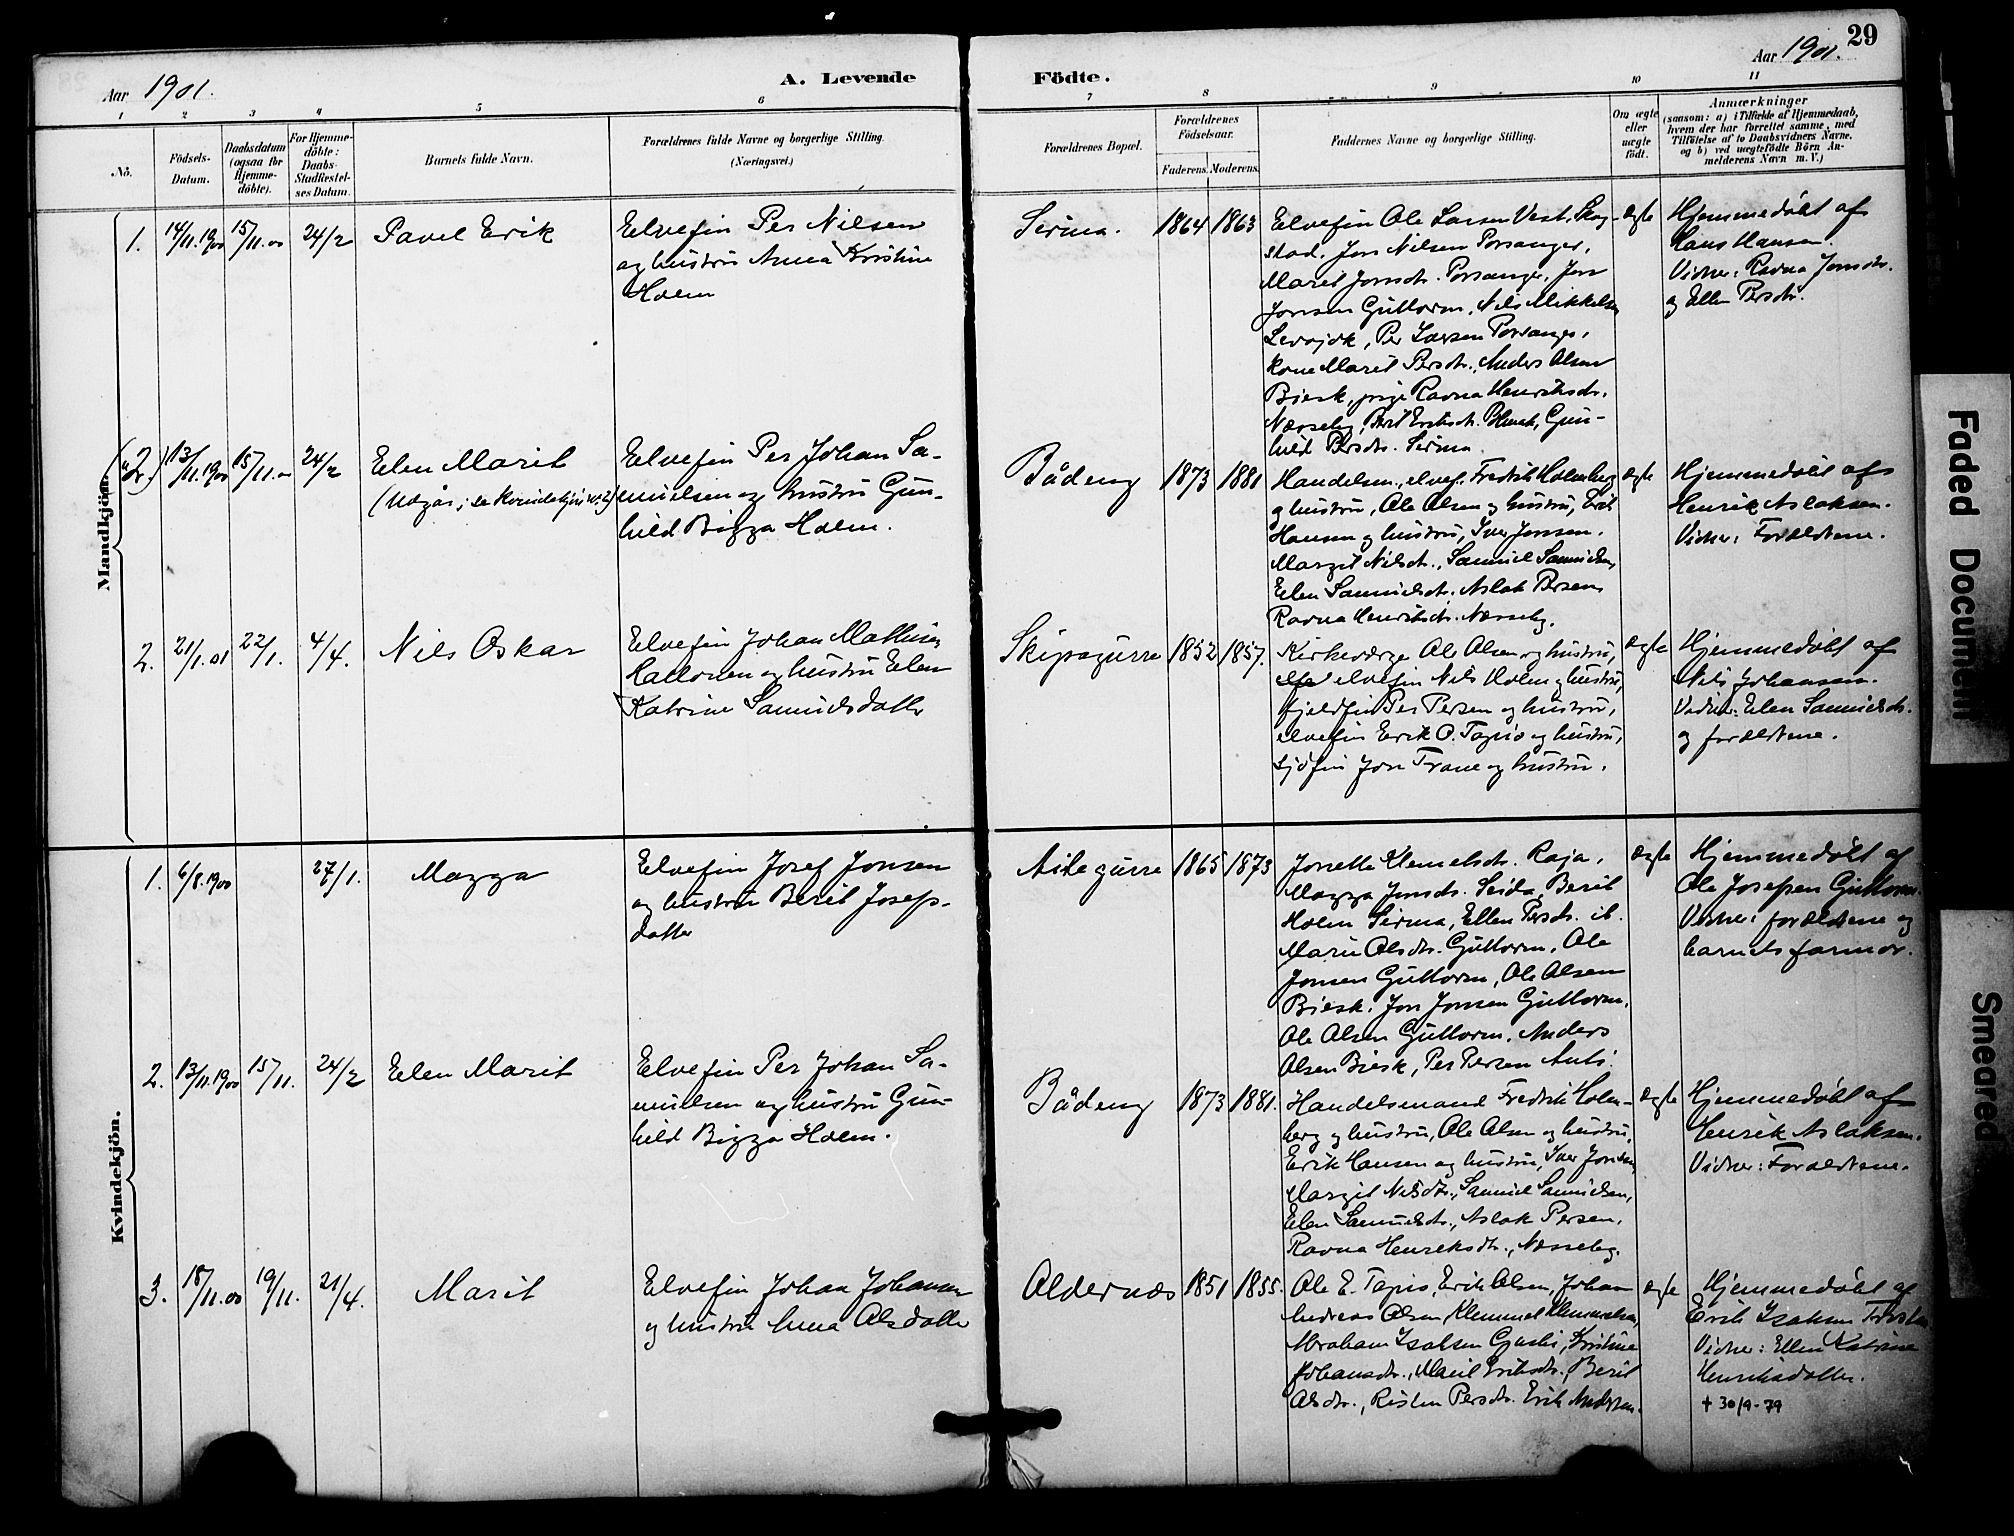 29
Aar 1901.
A. Levende Fødte.
Aar 1901.
1 2 3 4 5 6 7 8 9 10 11
No.
Födsels-Datum.
Daabsdatum (ogsaa for Hjemme-döbte).
For Hjemme-döbte: Daabs-Stadfæstel-ses Datum.
Barnets fulde Navn.
Forældrenes fulde Navne og borgerlige Stilling. (Næringsvei.)
Forældrenes Bopæl.
Forældrenes Födselsaar.
Faderens. Moderens.
Faddernes Navne og borgerlige Stilling.
Om ægte eller uægte födt.
Anmærkninger
(saasom: a) i Tilfælde af Hjemmedaab,
hvem der har forrettet samme, med
Tilföielse af to Daabsvidners Navne,
og b) ved uægtefödte Börn An-
melderens Navn m. V.)
Mandkjön.
1. 14/11.1900 15/11.00 24/2 Pavel Erik
Elvefin Per Nilsen
og hustru Anna Kristine
Holm
Sirma. 1864 1863
Elvefin Ole Larsen Vest, Skog-
stad, Jon Nilsen Porsanger,
Marit Jonsdtr. Porsanger, Jon
Jonsen Guttorm, Nils Mikkelsen
Levajok, Per Larsen Porsanger,
kone Marit Persdtr., Anders Olsen
Biesk, pige Ravna Henriksdtr.
Næsseby, Berit Eriksdtr. Blenk, Gun-
hild Persdtr. Sirma
ægte
Hjemmedöbt af
Hans Hansen.
Vidner: Ravna Jonsdtr.
og Ellen Persdtr.
("2.") 13/11.1900 15/11.00 24/2 Elen Marit
(Udgår; se Kvindekjön nr. 2)
Elvefin Per Johan Sa-
muelsen og hustru Gun-
hild Bigga Holm.
Bådeng 1873 1881
Handelsm., elvef. Fredrik Holmberg
og hustru, Ole Olsen og hustru, Erik
Hansen og hustru, Iver Jonsen.
Margit Nilsdtr., Samuel Samuelsen,
Elen Samuelsdtr. Aslak Persen,
Ravna Henriksdtr. Næsseby.
ægte
Hjemmedöbt af
Henrik Aslaksen.
Vidner: Forældrene.
2. 21/1.01 22/1. 4/4. Nils Oskar
Elvefin Johan Mathisen
Haltonen og hustru Elen
Katrine Samuelsdatter
Skipagurre 1852 1857.
Kirkeværge Ole Olsen og hustru,
elvefin Nils Holm og hustru,
fjeldfin Per Persen og hustru,
elvefin Erik O. Tapio og hustru,
sjöfin Jon Trane og hustru.
ægte
Hjemmedöbt af
Nils Johansen.
Vidner: Elen Samuelsdtr.
og forældrene.
Kvindekjön.
1. 6/8.1900 27/1. Magga
Elvefin Josef Jonsen
og hustru Berit Josefs-
datter
Ailegurre 1865 1873
Jonette Klemetsdtr. Raja,
Magga Jonsdtr. Seida, Berit
Holm Sirma, Ellen Persdtr. ib.
Marie Olsdtr. Guttorm, Ole
Jonsen Guttorm, Ole Olsen
Biesk, Jon Jonsen Guttorm.
Ole Olsen Guttorm, Anders
Olsen Biesk, Per Persen Anti.
ægte
Hjemmedöbt af
Ole Josefsen Guttorm.
Vidner: forældrene og
barnets farmor.
2. 13/11.1900 15/11. 24/2 Elen Marit
Elvefin Per Johan Sa-
muelsen og hustru Gun-
hild Bigga Holm.
Bådeng 1873 1881.
Handelsmand Fredrik Holm-
berg og hustru, Ole Olsen og hustru,
Erik Hansen og hustru, Iver Jonsen,
Margit Nilsdtr., Samuel Samuelsen,
Elen Samuelsdtr., Aslak Persen,
Ravna Henriksdtr., Næsseby.
ægte
Hjemmedöbt af
Henrik Aslaksen.
Vidner: Forældrene.
3. 18/11.00 19/11. 21/4. Marit
Elvefin Johan Johansen
og hustru Anna Olsdatter
Aldernæs 1851 1855.
Ole E. Tapio, Erik Olsen, Johan
Andreas Olsen, Klemmet Klemmetsen,
Abraham Isaksen, Kristine
Johansdtr., Marit Eriksdtr., Berit
Olsdtr., Risten Persdtr. Erik Andersen.
ægte
Hjemmedöbt af
Erik Isaksen
Vidner: Ellen Katrine
Henriksdatter.
† 30/9-79
Faded Document
Smeared